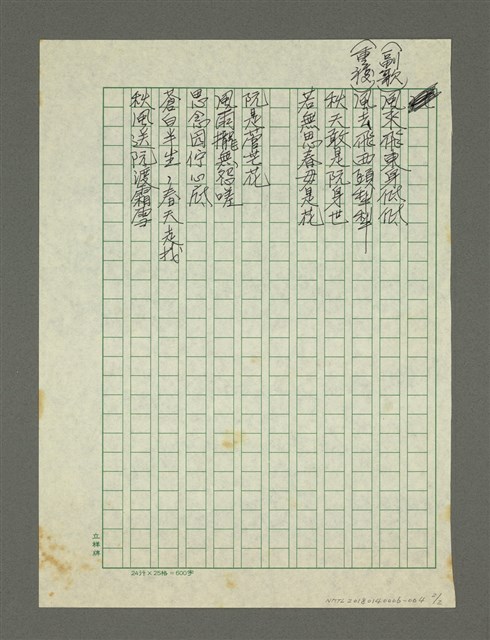 (副歌)
(重複)
風來飛東卑低低
風去飛西頭犁犁
秋天敢是阮身世
若無思春毋是花
阮是菅芒花
風雨攏無怨嗟
思念囥佇心底
蒼白半生，春天走找
秋風送阮渡霜雪
立輝牌
24行×25格=600字
NMTL20180140006-004 2/2